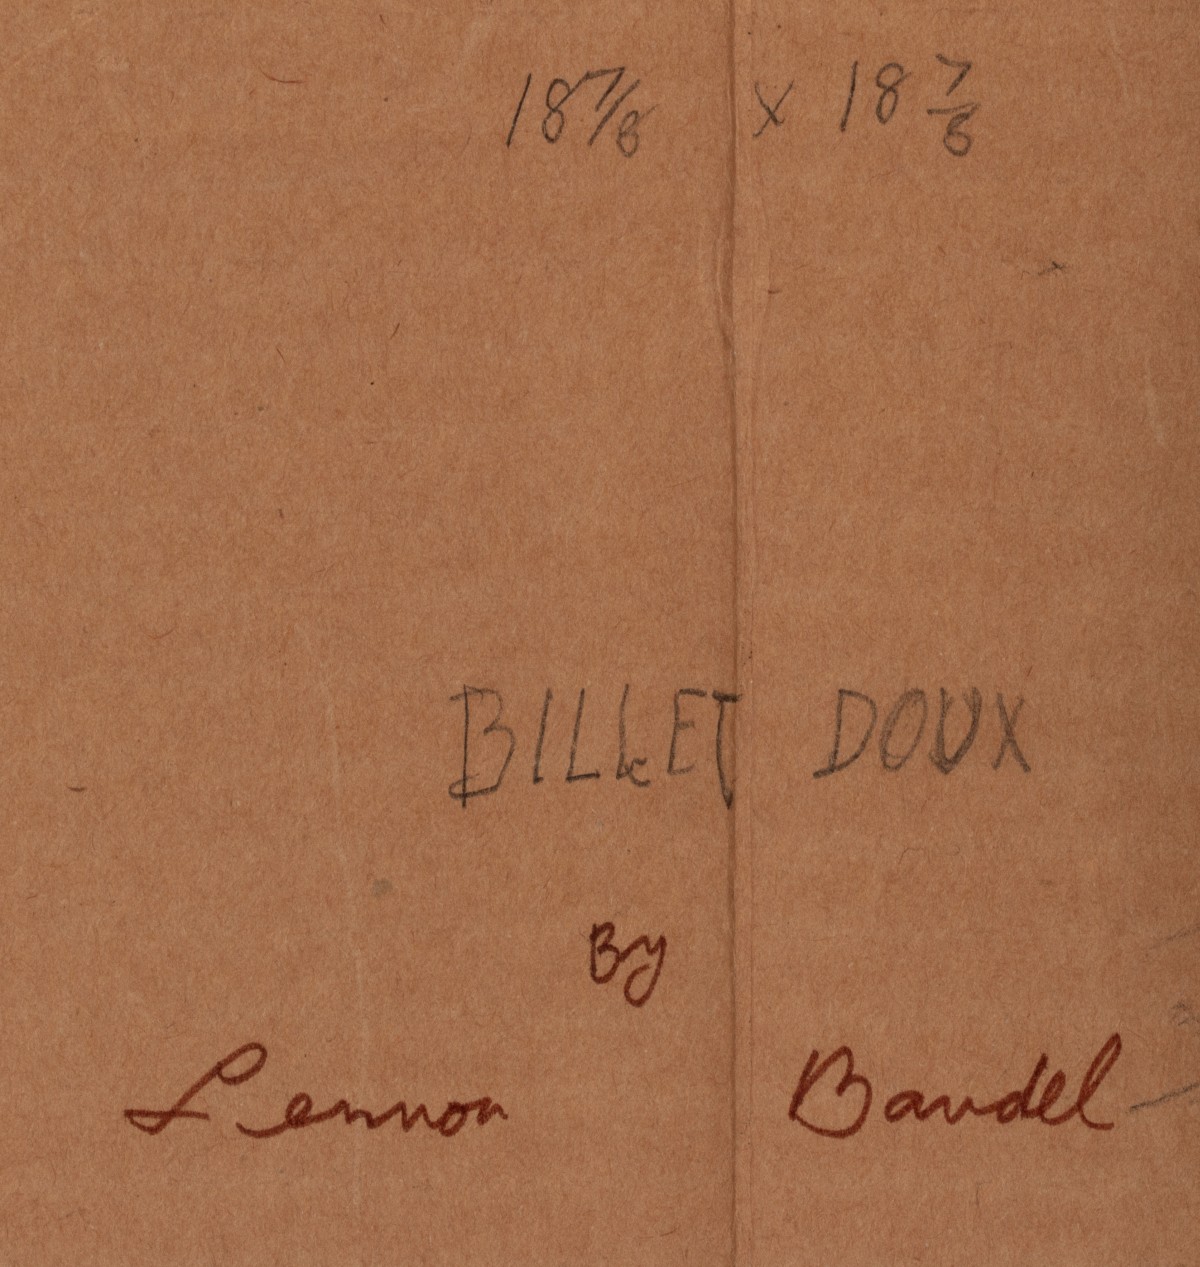 18 7/8 x 18 7/8
BILLET DOUX
By
Lennon Bandel